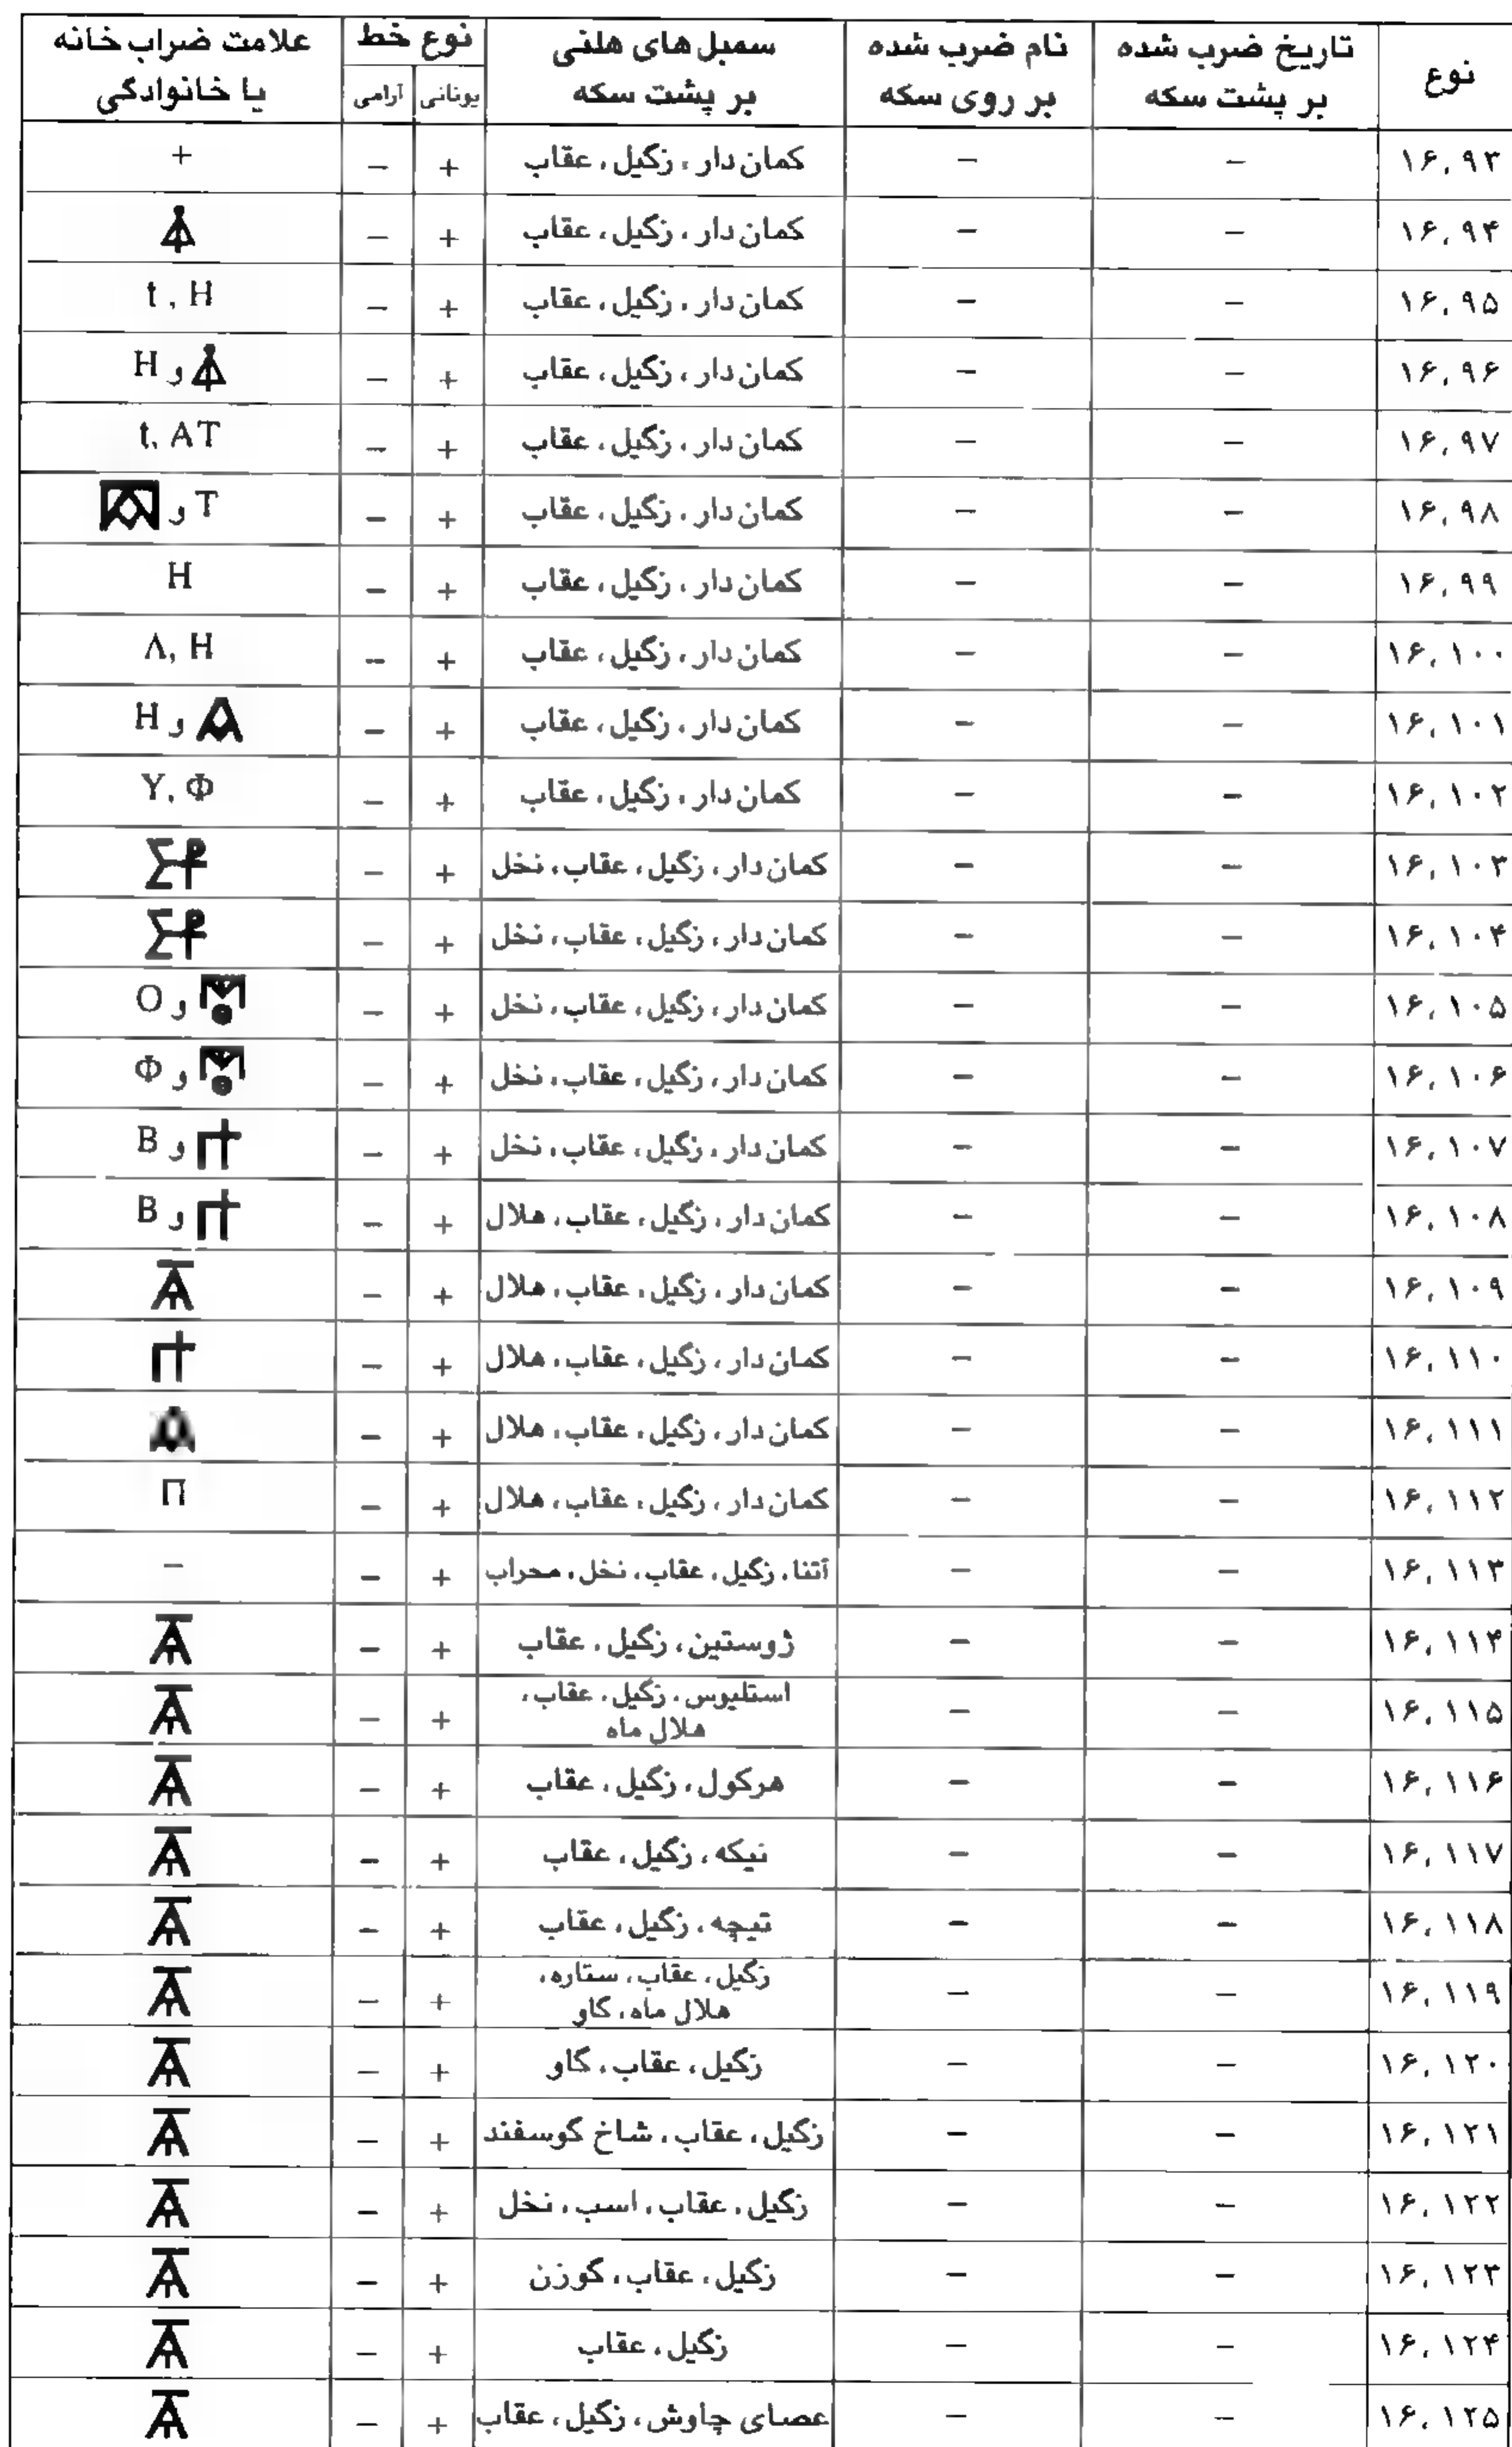 نوع | تاریخ ضرب شده بر پشت سکه | نام ضرب شده بر روی سکه | سمبل های هلنی بر پشت سکه | نوع خط: یونانی | آرامی | علامت ضراب خانه یا خانوادگی
۱۶,۹۳ | – | – | کمان دار، زگیل، عقاب | + | – | +
۱۶,۹۴ | – | – | کمان دار، زگیل، عقاب | + | –
۱۶,۹۵ | – | – | کمان دار، زگیل، عقاب | + | – | t, H
۱۶,۹۶ | – | – | کمان دار، زگیل، عقاب | + | – | و H
۱۶,۹۷ | – | – | کمان دار، زگیل، عقاب | + | – | t, AT
۱۶,۹۸ | – | – | کمان دار، زگیل، عقاب | + | – | T و
۱۶,۹۹ | – | – | کمان دار، زگیل، عقاب | + | – | H
۱۶,۱۰۰ | – | – | کمان دار، زگیل، عقاب | + | – | Λ, H
۱۶,۱۰۱ | – | – | کمان دار، زگیل، عقاب | + | – | و H
۱۶,۱۰۲ | – | – | کمان دار، زگیل، عقاب | + | – | Y, Φ
۱۶,۱۰۳ | – | – | کمان دار، زگیل، عقاب، نخل | + | –
۱۶,۱۰۴ | – | – | کمان دار، زگیل، عقاب، نخل | + | –
۱۶,۱۰۵ | – | – | کمان دار، زگیل، عقاب، نخل | + | – | و O
۱۶,۱۰۶ | – | – | کمان دار، زگیل، عقاب، نخل | + | – | و Φ
۱۶,۱۰۷ | – | – | کمان دار، زگیل، عقاب، نخل | + | – | و B
۱۶,۱۰۸ | – | – | کمان دار، زگیل، عقاب، هلال | + | – | و B
۱۶,۱۰۹ | – | – | کمان دار، زگیل، عقاب، هلال | + | –
۱۶,۱۱۰ | – | – | کمان دار، زگیل، عقاب، هلال | + | –
۱۶,۱۱۱ | – | – | کمان دار، زگیل، عقاب، هلال | + | –
۱۶,۱۱۲ | – | – | کمان دار، زگیل، عقاب، هلال | + | – | Π
۱۶,۱۱۳ | – | – | آتنا، زگیل، عقاب، نخل، محراب | + | – | –
۱۶,۱۱۴ | – | – | ژوستین، زگیل، عقاب | + | –
۱۶,۱۱۵ | – | – | استلیوس، زگیل، عقاب، هلال ماه | + | –
۱۶,۱۱۶ | – | – | هرکول، زگیل، عقاب | + | –
۱۶,۱۱۷ | – | – | نیکه، زگیل، عقاب | + | –
۱۶,۱۱۸ | – | – | تیچه، زگیل، عقاب | + | –
۱۶,۱۱۹ | – | – | زگیل، عقاب، ستاره، هلال ماه، گاو | + | –
۱۶,۱۲۰ | – | – | زگیل، عقاب، گاو | + | –
۱۶,۱۲۱ | – | – | زگیل، عقاب، شاخ گوسفند | + | –
۱۶,۱۲۲ | – | – | زگیل، عقاب، اسب، نخل | + | –
۱۶,۱۲۳ | – | – | زگیل، عقاب، گوزن | + | –
۱۶,۱۲۴ | – | – | زگیل، عقاب | + | –
۱۶,۱۲۵ | – | – | عصای چاوش، زگیل، عقاب | + | –